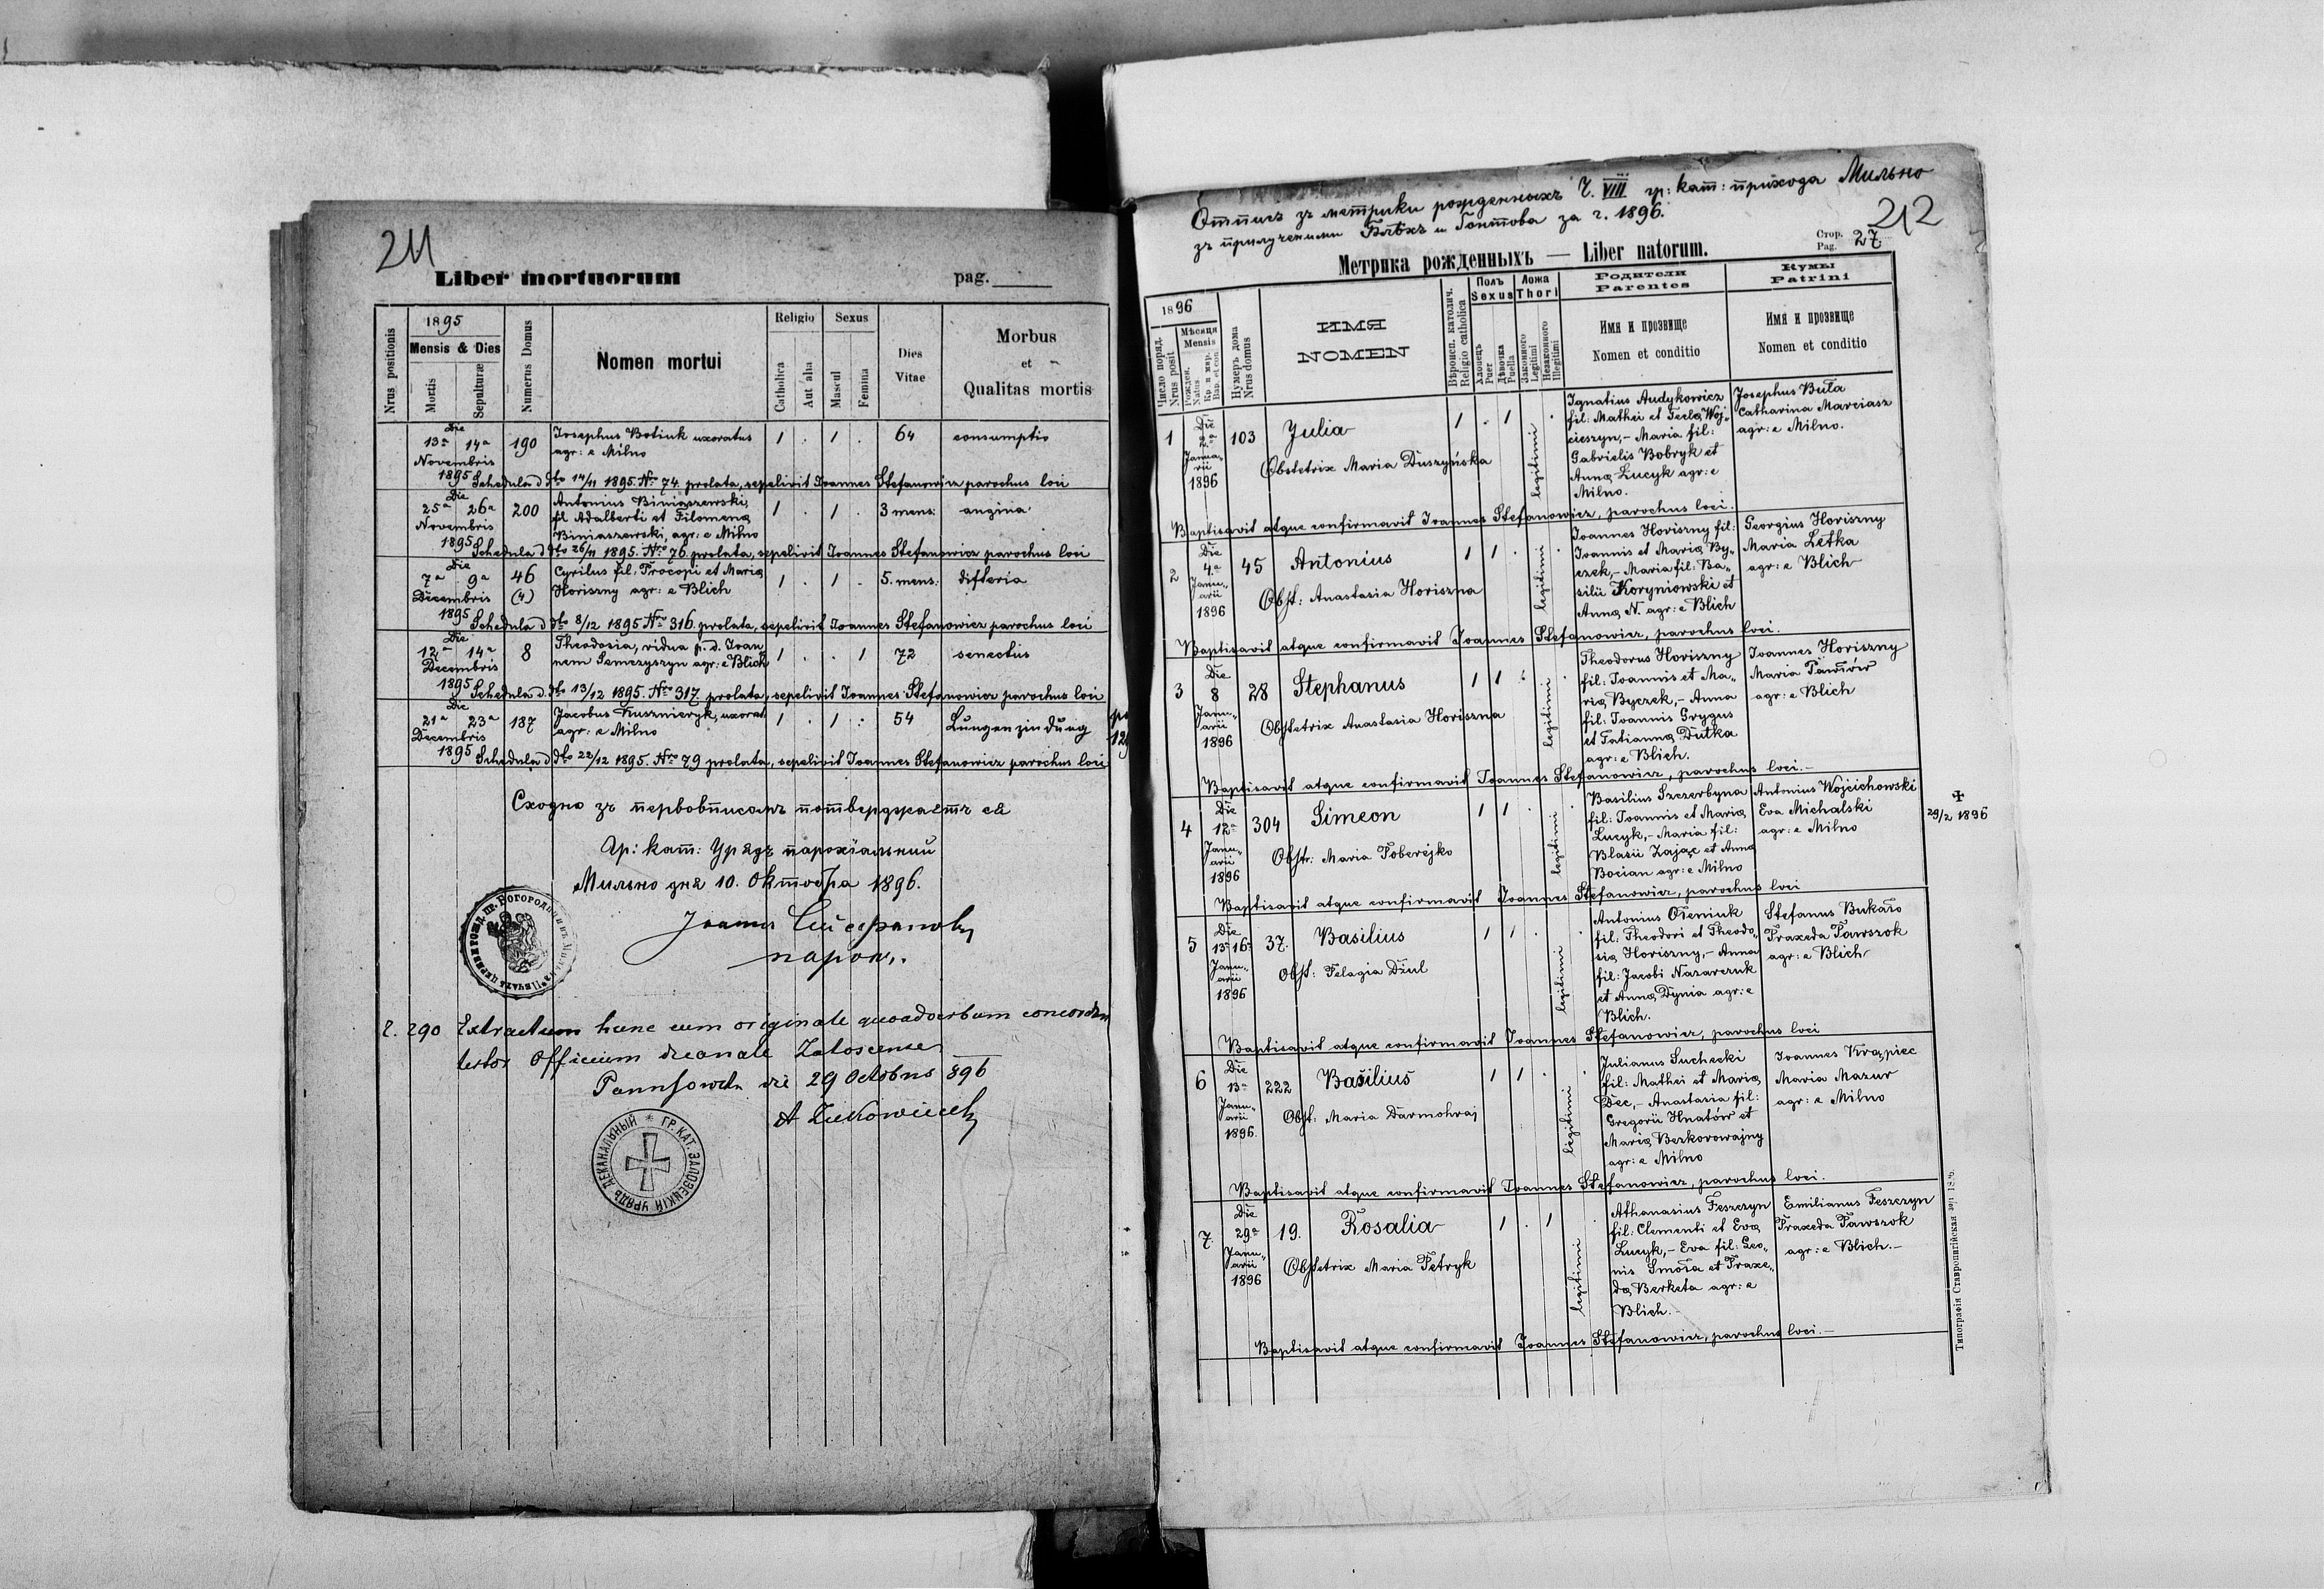 211
Liber mortuorum
pag.
Nrus positionis
1895
Mensis & Dies
Mortis
Sepulturæ
Numerus Domus
Nomen mortui
Religio
Catholica
Aut alia
Sexus
Mascul
Femina
Dies
Vitae
Morbus
et
Qualitas mortis
Die
13ª 14ª
Novembris
1895
190
Josephus Botiuk uxoratus
agr: e Milno
1 . 1 . 64 consumptio
Schedula d dto 14/11 1895. Nro 74. prolata, sepelivit Joannes Stefanowicz parochus loci
Die
25ª 26ª
Novembris
1895
200
Antonius Biniaszewski,
fil Adalberti et Filomena
Biniaszewski, agr: e Milno
1 . 1 . 3 mens: angina
Schedula d dto 26/11 1895. Nro 76. prolata, sepelivit Joannes Stefanowicz parochus loci
Die
7ª 9ª
Decembris
1895
46
(4)
Cyrilus fil: Procopi et Maria
Horiszny agr: e Blich
1 . 1 . 5. mens: difteria
Schedula d dto 8/12 1895 Nro 316. prolata, sepelivit Joannes Stefanowicz parochus loci
Die
12ª 14ª
Decembris
1895
8
Theodosia, vidua p. d. Joan
nem Semczyszyn agr: e Blich
1 . . 1 72 senectus
Schedula d. dto 13/12 1895. Nro 317 prolata, sepelivit Joannes Stefanowicz parochus loci
Die
21ª 23ª
Decembris
1895
187
Jacobus Kusznieryk, uxorat
agr: e Milno
1 . 1 : 54 Lungenzindung
Schedula d dto 22/12 1895. Nro 79 prolata, sepelivit Joannes Stefanowicz parochus loci
Сходно зъ первовписомъ потверджаетъ ся
Гр: кат: Урядъ парохіальний
Мильно дня 10. Октобра 1896.
парох.
Ч. 290 Extractum hunc cum originale quoad verbum concordare
testor Officium decanale Zaloscense
die 29 Octobris 896
ДЕКАНАЛЬНЫЙ * ГР. КАТ. ЗАЛОЗЕЦКІЙ УРЯДЪ
Отписъ зъ метрики рожденныхъ Ч. VIII гр: кат: прихода Мильно
зъ прилученими Блѣхъ и Гонтова за г. 1896.
212
Стор.
Pag. 27
Метрика рожденныхъ — Liber natorum.
1896
Число поряд.
Nrus posit
Мѣсяця
Mensis
Рожден.
Natus
Кр. и мир.
Bap. et con
Нумеръ дома
Nrus domus
ИМЯ
NOMEN
Вѣроисп. католич.
Religio catholica
Полъ
Sexus
Хлопець
Puer
Дѣвочка
Puella
Ложа
Thori
Законного
Legitimi
Незаконного
Illegitimi
Родители
Parentes
Имя и прозвище
Nomen et conditio
Кумы
Patrini
Имя и прозвище
Nomen et conditio
1
Die
2ª
Janua-
rii
1896
103
Julia
Obstetrix Maria Duszyńska
1 . 1 legitimi .
Ignatius Audykowicz
fil: Mathei et Tecla Woj„
cieszyn,- Maria fil:
Gabrielis Bobryk et
Anna Lucyk agr: e
Milno.
Josephus Buła
Catharina Marciasz
agr: e Milno.
Baptisavit atque confirmavit Joannes Stefanowicz, parochus loci.
2
Die
4.ª
Janu„
arii
1896
45
Antonius
Obst: Anastasia Horiszna
1 1 . legitimi .
Joannes Horiszny fil:
Joannis et Maria By„
czek,- Maria fil: Ba„
silii Koryniowski et
Anna N. agr: e Blich
Georgius Horiszny
Maria Letka
agr: e Blich
Baptisavit atque confirmavit Joannes Stefanowicz, parochus loci.
3
Die
8
Janu„
arii
1896
28
Stephanus
Obstetrix Anastasia Horiszna
1 1 . legitimi .
Theodorus Horiszny
fil: Joannis et Ma„
ria Byczek,- Anna
fil: Joannis Grygus
et Tatianna Dutka
agr: e Blich.
Joannes Horiszny
Maria Pawłów
agr: e Blich
Baptisavit atque confirmavit Joannes Stefanowicz, parochus loci.-
4
Die
12ª
Janu„
arii
1896
304
Simeon
Obstr: Maria Poberejko
1 1 . legitimi .
Basilius Szczerbyna
fil: Joannis et Maria
Lucyk,- Maria fil:
Blasii Zając et Anna
Bocian agr: e Milno
Antonius Wojcichowski
Eva Michalski
agr: e Milno
✠
29/2 1896
Baptisavit atque confirmavit Joannes Stefanowicz, parochus loci
5
Die
13ª 16ª
Janu„
arii
1896
37.
Basilius
Obst: Pelagia Dziul
1 1 . legitimi .
Antonius Ołeniuk
fil: Theodori et Theodo„
sia Horiszny,- Anna
fil: Jacobi Nazarczuk
et Anna Dynia agr: e
Blich.
Stefanus Bukało
Praxeda Pawszok
agr: e Blich
Baptisavit atque confirmavit Joannes Stefanowicz, parochus loci
6
Die
13ª
Janu„
arii
1896.
222
Basilius
Obst: Maria Darmohraj
1 1 . legitimi .
Julianus Suchecki
fil: Mathei et Maria
Dec,- Anastasia fil:
Gregorii Hnatów et
Maria Bezkorowajny
agr: e Milno
Joannes Krąpiec
Maria Mazur
agr: e Milno
Baptisavit atque confirmavit Joannes Stefanowicz, parochus loci.
7.
Die
29ª
Janu„
arii
1896
19.
Rosalia
Obstetrix Maria Petryk
1 . 1 legitimi .
Athanasius Feszczyn
fil: Clementi et Eva
Lucyk,- Eva fil: Leo„
nis Smoła et Praxe„
da Berketa agr: e
Blich.
Emilianus Feszczyn
Praxeda Pawszok
agr: e Blich.-
Baptisavit atque confirmavit Joannes Stefanowicz, parochus loci.-
Типографія Ставропигійская